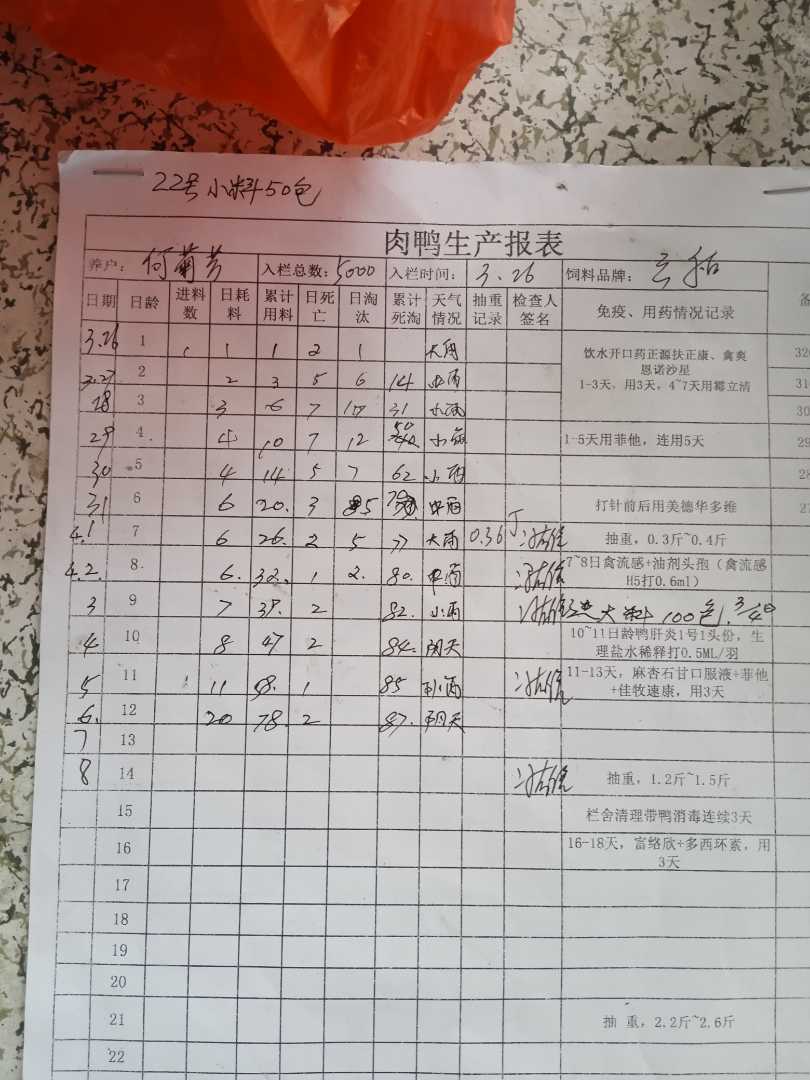 22号小料50包
肉鸭生产报表
养户: 何菊芳 入栏总数: 5000 入栏时间: 3.26 饲料品牌:
日期 日龄 进料数 日耗料 累计用料 日死亡 日淘汰 累计死淘 天气情况 抽重记录 检查人签名 免疫、用药情况记录
3.26 1 1 1 2 1 大雨 饮水开口药正源扶正康、禽炎恩诺沙星 320
1-3天，用3天，4~7天用霉立清
3.27 2 2 3 5 6 14 中雨 310
28 3 3 6 7 10 31 小雨 30
29 4 4 10 7 12 50 小雨 1-5天用菲他，连用5天 29
30 5 4 14 5 7 62 小雨 28
31 6 6 20. 3 5 70 中雨 打针前后用美德华多维 27
4.1 7 6 26. 2 5 77 大雨 0.36斤 抽重，0.3斤~0.4斤
4.2. 8 6. 32. 1 2. 80. 中雨 7~8日禽流感+油剂头孢（禽流感H5打0.6ml）
3 9 7 39. 2 82. 小雨 进大料100包.3/4日
4 10 8 47 2 84. 阴天 10~11日龄鸭肝炎1号1头份，生理盐水稀释打0.5ML/羽
5 11 11 58. 1 85 小雨 11-13天，麻杏石甘口服液+菲他+佳牧速康，用3天
6. 12 20 78. 2 87. 阴天
7 13
8 14 抽重，1.2斤~1.5斤
15 栏舍清理带鸭消毒连续3天
16 16-18天，富络欣+多西环素，用3天
17
18
19
20
21 抽 重，2.2斤~2.6斤
22